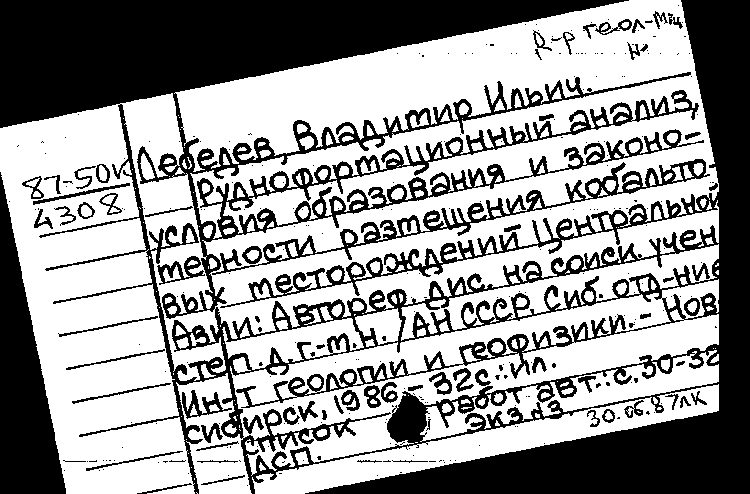 Д-р геол-мин
н.
Лебедев, Владимир Ильич.
87-50к
4308
Руднофортационный анализ,
условия образования и законо-
терности размещения кобальто-
вых тесторождений Центральной
Азии: Автореф. дис. на соиск. учен
степ. д. г.-т.н. /АН СССР. Сиб. отд-ние
Ин-т геологии и геофизики. - Ново
сибирск, 1986 - 32с.: ил.
список работ авт.: с.30-32
ДСП. Экз.№3. 30.06.87лк